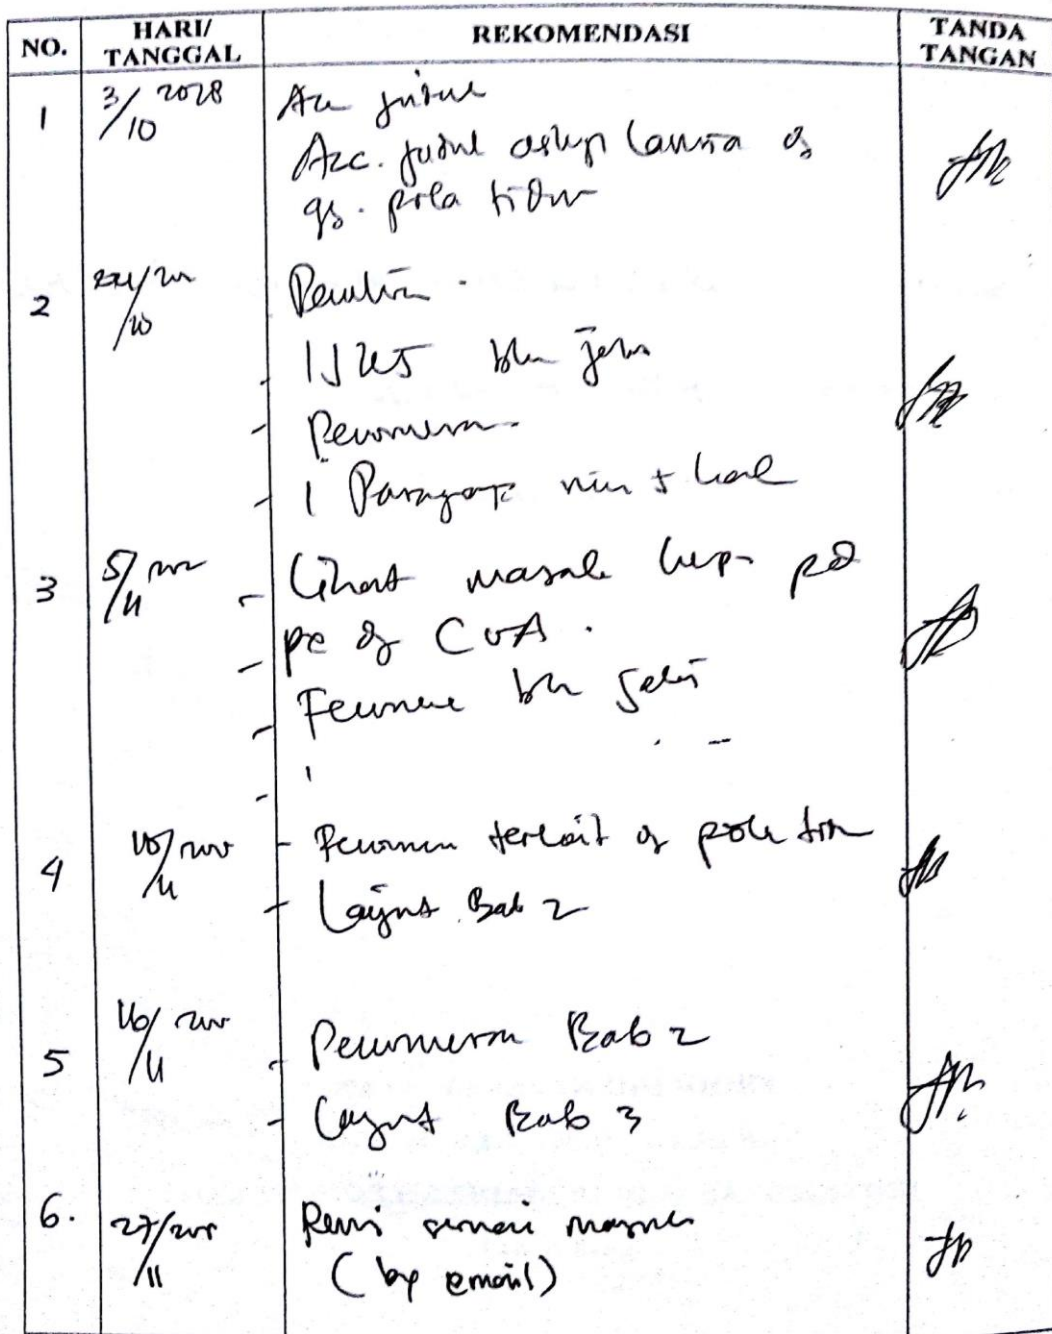 NO.
HARI/
TANGGAL
REKOMENDASI
TANDA
TANGAN
1
3/10 2018
Acc judul
Acc. judul askep lansia dg
gg. pola tidur
2
Penulisan
blm jelas
Penomoran
1 Paragrap min 5 kal
3
5/11
- Lihat masalah kep pd
- px dg CVA.
- Fenomena blm
4
- Fenomena terkait dg pola tidur
- Lanjut Bab 2
5
16/11
- Penomoran Bab 2
- Lanjut Bab 3
6.
27/11
Revisi sesuai
(by email)